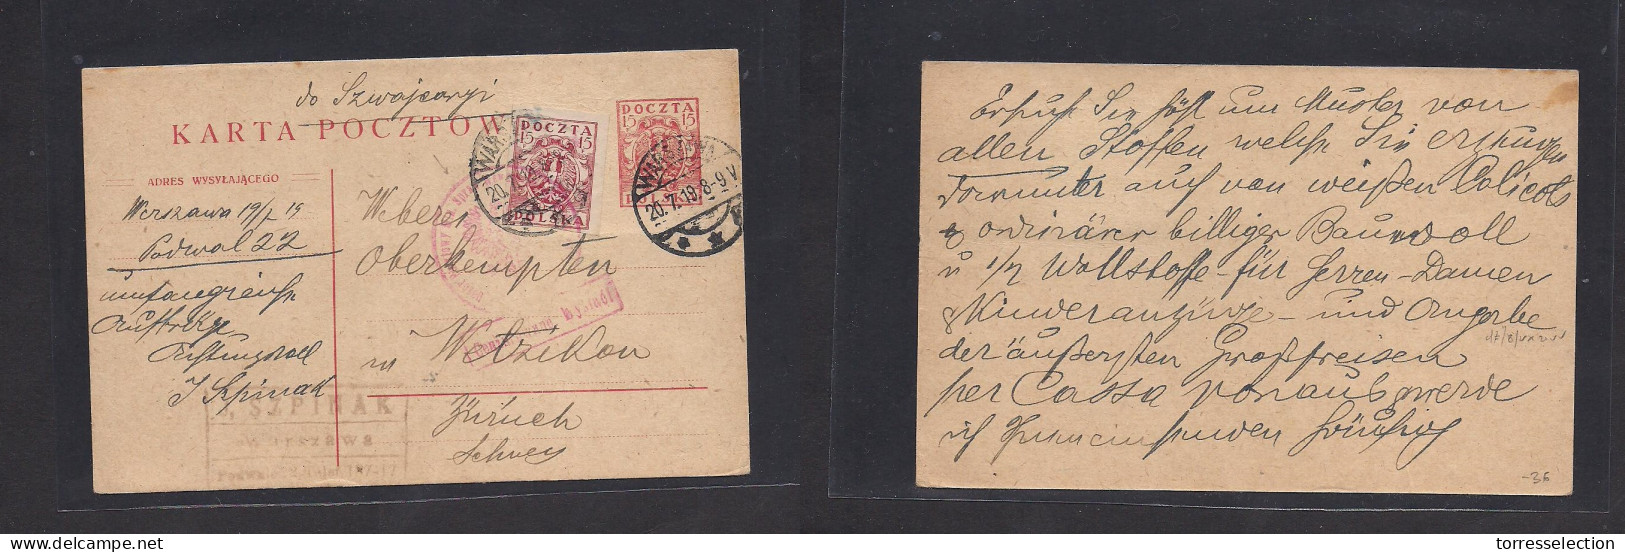 do Szwajcaryi
KARTA POCZTOW
ADRES WYSYŁAJĄCEGO
Warszawa 19/7 19
Podwal 22
umfangreiche
Aufträge
I Szpinak
J. SZPINAK
Warszawa
POCZTA
15 15
POLSKA
POCZTA
15 15
WARSZAWA
20.7.19.8-9V
Weberei
Oberkempten
in Wetzikon
Zürich
Schweiz
Ersuche Sie höfl um Muster von
allen Stoffen welche Sie erzeugen
darunter auch von weißen Calicots
ordinärer billiger Baumwoll
u 1/2 Wollstoffe für Herren - Damen
& Kinderanzüge - und Angabe
der äußersten Großpreisen
per Cassa voraus werde
ich
-36
www.delcampe.net
torresselection